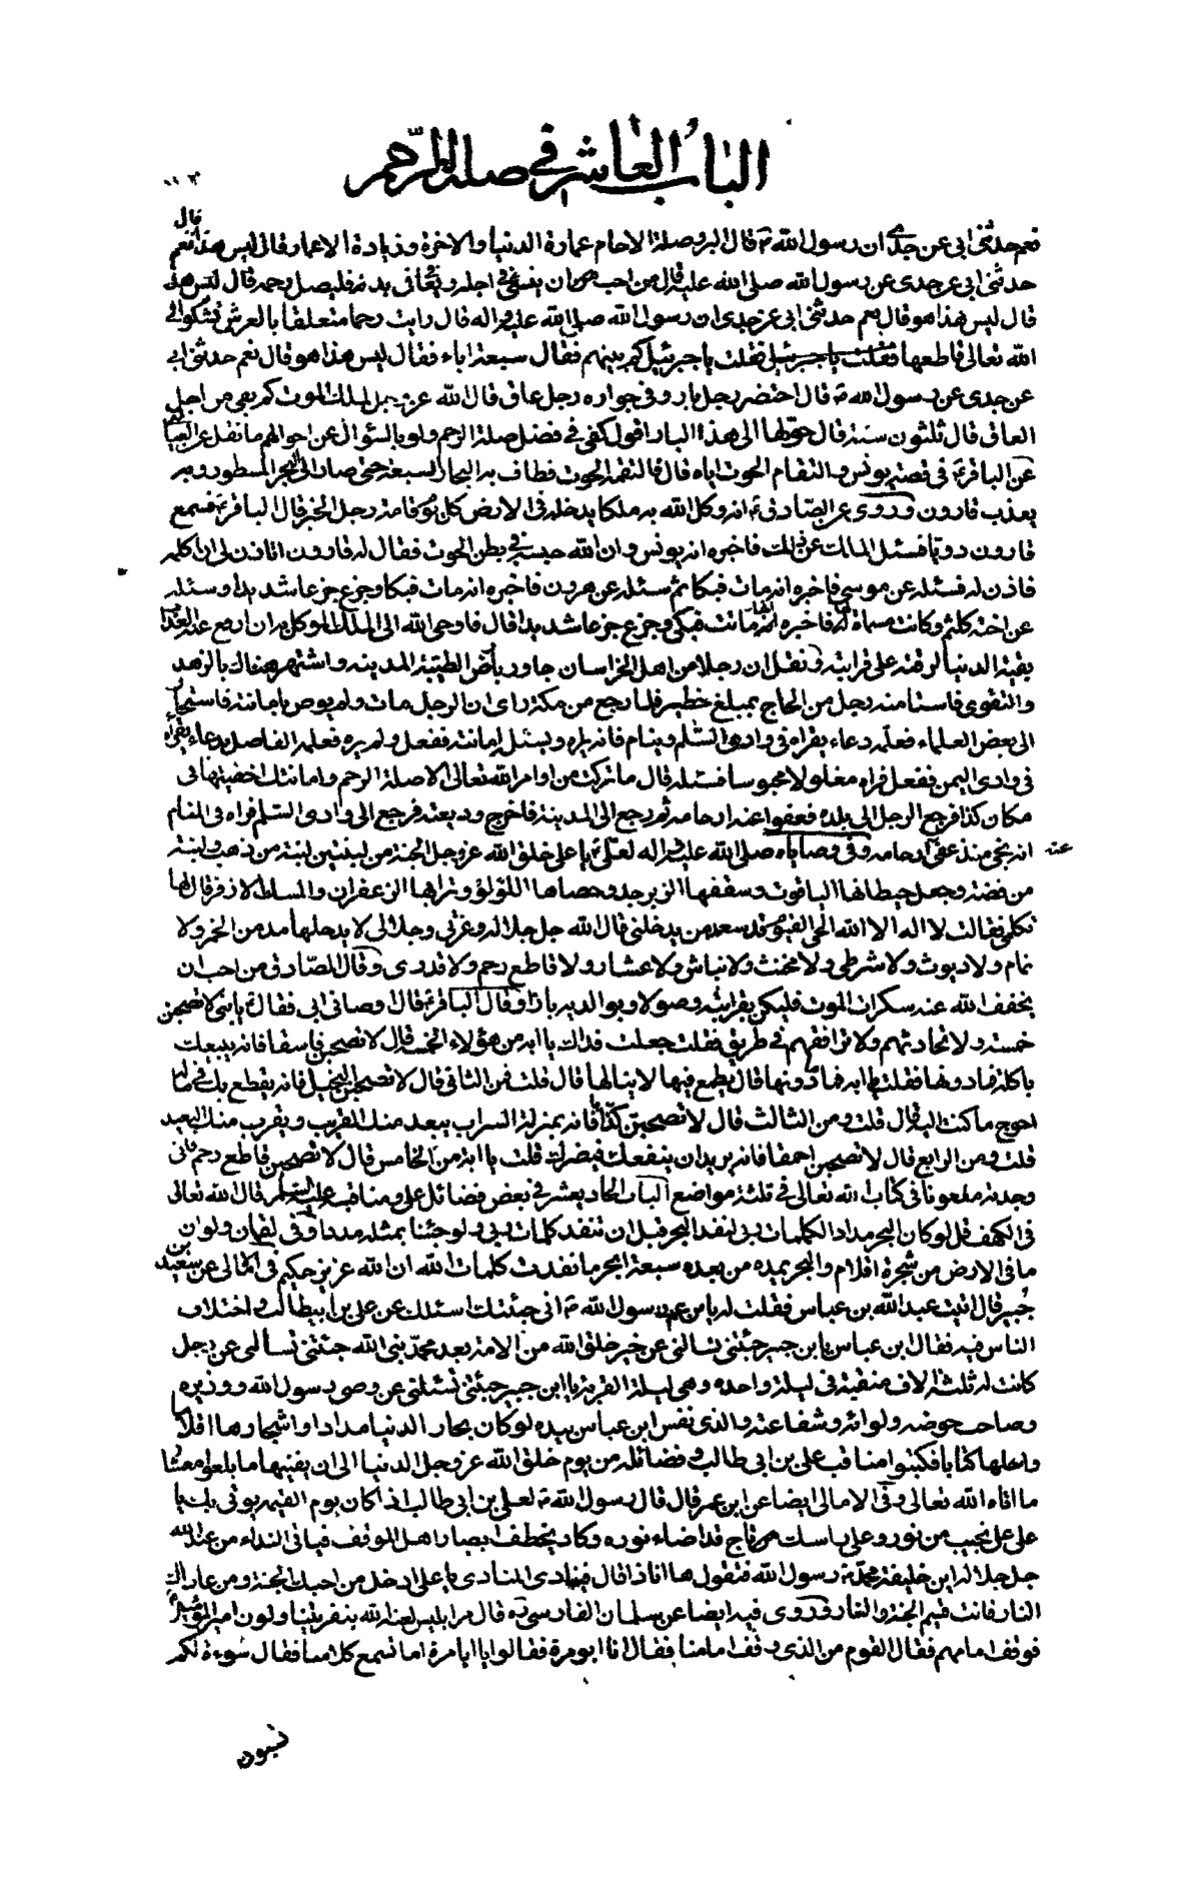 الباب العاشر في صلة الرحم
قال
نعم حدثني ابي عن جدي ان رسول الله ص قال البر وصلة الارحام عمارة الدنيا والاخرة وزيادة الاعمار قال ليس هذا نعم
حدثني ابي عن جدي عن رسول الله صلى الله عليه قال من احب ان ينسئ في اجله ويعافى في بدنه فليصل رحمه قال ليس هذا
قال ليس هذا هو قال نعم حدثني ابي عن جدي ان رسول الله صلى الله عليه واله قال رايت رحما متعلقا بالعرش تشكوا الى
الله تعالى قاطعها فقلت يا جبرئيل فقلت يا جبرئيل كم بينهم فقال سبعة اباء فقال ليس هذا هو قال نعم حدثني ابي
عن جدي عن رسول الله ص قال احتضر رجل بار وفي جواره رجل عاق قال الله عز وجل لملك الموت كم بقي من اجل
العاق قال ثلثون سنة قال حولها الى هذا البار اقول كفى في فضل صلة الرحم ولو بالسؤال عن احوالهم ما نقل عن
عن الباقر ع في قصة يونس والتقام الحوت اياه قال فالتقمه الحوت فطاف به البحار السبعة حتى صار الى البحر المسجور وبه
يعذب قارون وروى عن الصادق ع انه وكل الله به ملكا يدخله في الارض كل يوم قامة رجل الخبر قال الباقر ع فسمع
قارون دويا فسئل الملك عن ذلك فاخبره انه يونس وان الله حبسه في بطن الحوت فقال له قارون اتاذن لي ان اكلمه
فاذن له فسئله عن موسى فاخبره انه مات فبكا ثم سئله عن هرون فاخبره انه مات فبكا وجزع جزعا شديدا وسئله
عن اخته كلثم وكانت مسماة له فاخبره انها ماتت فبكى وجزع جزعا شديدا قال فاوحى الله الى الملك الموكل به ان ارفع عنه العذاب
بقية الدنيا لرقته على قرابته ونقل ان رجلا من اهل الخراسان جاور بارض الطيبة المدينة واشتهر هناك بالزهد
والتقوى فاستامنه رجل من الحاج بمبلغ خطير فلما رجع من مكة راى ان الرجل مات ولم يوص بامانته فاستجار
الى بعض العلماء فعلمه دعاء يقراه في وادي السلم وينام فانه يراه ويسئل امانته ففعل ولم يره فعلمه الفاضل دعاء يقراه
في وادي اليمن ففعل فراه مغلولا محبوسا فسئله قال ما تركت من اوامر الله تعالى الا صلة الرحم وامانتك اخفيتها في
مكان كذا فرجع الرجل الى بلده فعفوا عنه ارحامه ثم رجع الى المدينة فاخرج وديعته فرجع الى وادي السلم فراه في المنام
انه نجى منذ عفى ارحامه وفي وصاياه صلى الله عليه واله لعلي ع يا علي خلق الله عز وجل الجنة من لبنتين لبنة من ذهب ولبنة
عنه
من فضة وجعل حيطانها الياقوت وسقفها الزبرجد وحصاها اللؤلؤ وترابها الزعفران والمسك الاذفر قال لها
تكلمي فقالت لا اله الا الله الحي القيوم قد سعد من يدخلني قال الله جل جلاله وعزتي وجلالي لا يدخلها مدمن الخمر ولا
نمام ولا ديوث ولا شرطي ولا مخنث ولا نباش ولا عشار ولا قاطع رحم ولا قدري وقال الصادق من احب ان
يخفف الله عنه سكرات الموت فليكن بقرابته وصولا وبوالديه بارا وقال الباقر ع قال اوصاني ابي فقال ع يا بني لا تصحبن
خمسة ولا تحادثهم ولا ترافقهم في طريق فقلت جعلت فداك يا ابه من هؤلاء الخمسة قال لا تصحبن فاسقا فانه يبيعك
باكلة فما دونها فقلت يا ابه فما دونها قال يطمع فيها لا ينالها قال قلت فمن الثاني قال لا تصحبن البخيل فانه يقطع بك في ماله
احوج ما كنت اليه قال قلت ومن الثالث قال لا تصحبن كذابا فانه بمنزلة السراب يبعد منك القريب ويقرب منك البعيد
قلت ومن الرابع قال لا تصحبن احمقا فانه يريد ان ينفعك فيضرك قلت يا ابه من الخامس قال لا تصحبن قاطع رحم فاني
وجدته ملعونا في كتاب الله تعالى في ثلثة مواضع الباب الحاديعشر في بعض فضائل علي ومناقب عليه السلم قال الله تعالى
في الكهف قل لو كان البحر مدادا لكلمات ربي لنفد البحر قبل ان تنفد كلمات ربي ولو جئنا بمثله مددا وفي لقمان ولو ان
ما في الارض من شجرة اقلام والبحر يمده من بعده سبعة ابحر ما نفدت كلمات الله ان الله عزيز حكيم في الامالي عن سعيد بن
جبير قال اتيت عبد الله بن عباس فقلت له يا بن عم رسول الله ص اني جئتك اسئلك عن علي بن ابيطالب واختلاف
الناس فيه فقال ابن عباس يا بن جبير جئتني تسالني عن خير خلق الله من الامة بعد محمد نبي الله جئتني تسالني عن رجل
كانت له ثلثة الاف منقبة في ليلة واحده وهي ليلة القربة يا ابن جبير جئتني تسئلني عن وصي رسول الله ووزيره
وصاحب حوضه ولوائه وشفاعته والذي نفس ابن عباس بيده لو كان بحار الدنيا مدادا واشجارها اقلاما
واهلها كتابا فكتبوا مناقب علي بن ابي طالب وفضائله من يوم خلق الله عز وجل الدنيا الى ان يفنيها ما بلغوا معشار
ما اتاه الله تعالى وفي الامالي ايضا عن ابن عمر قال قال رسول الله ص لعلي بن ابي طالب اذا كان يوم القيمة يوتى بك يا
علي على نجيب من نور وعلى راسك تاج قد اضاء نوره وكاد يخطف ابصار اهل الموقف فياتي النداء من عند الله
جل جلاله اين خليفة محمد ص رسول الله فتقول ها اناذا قال فينادي المنادي يا علي ادخل من احبك الجنة ومن عاداك
النار فانت قسيم الجنة والنار وروى فيه ايضا عن سلمان الفارسي ره قال مر ابليس لعنه الله بنفر يتناولون امير المؤمنين
فوقف امامهم فقال القوم من الذي وقف امامنا فقال انا ابو مرة فقالوا يا ابا مرة اما تسمع كلامنا فقال سوءة لكم
تسبون